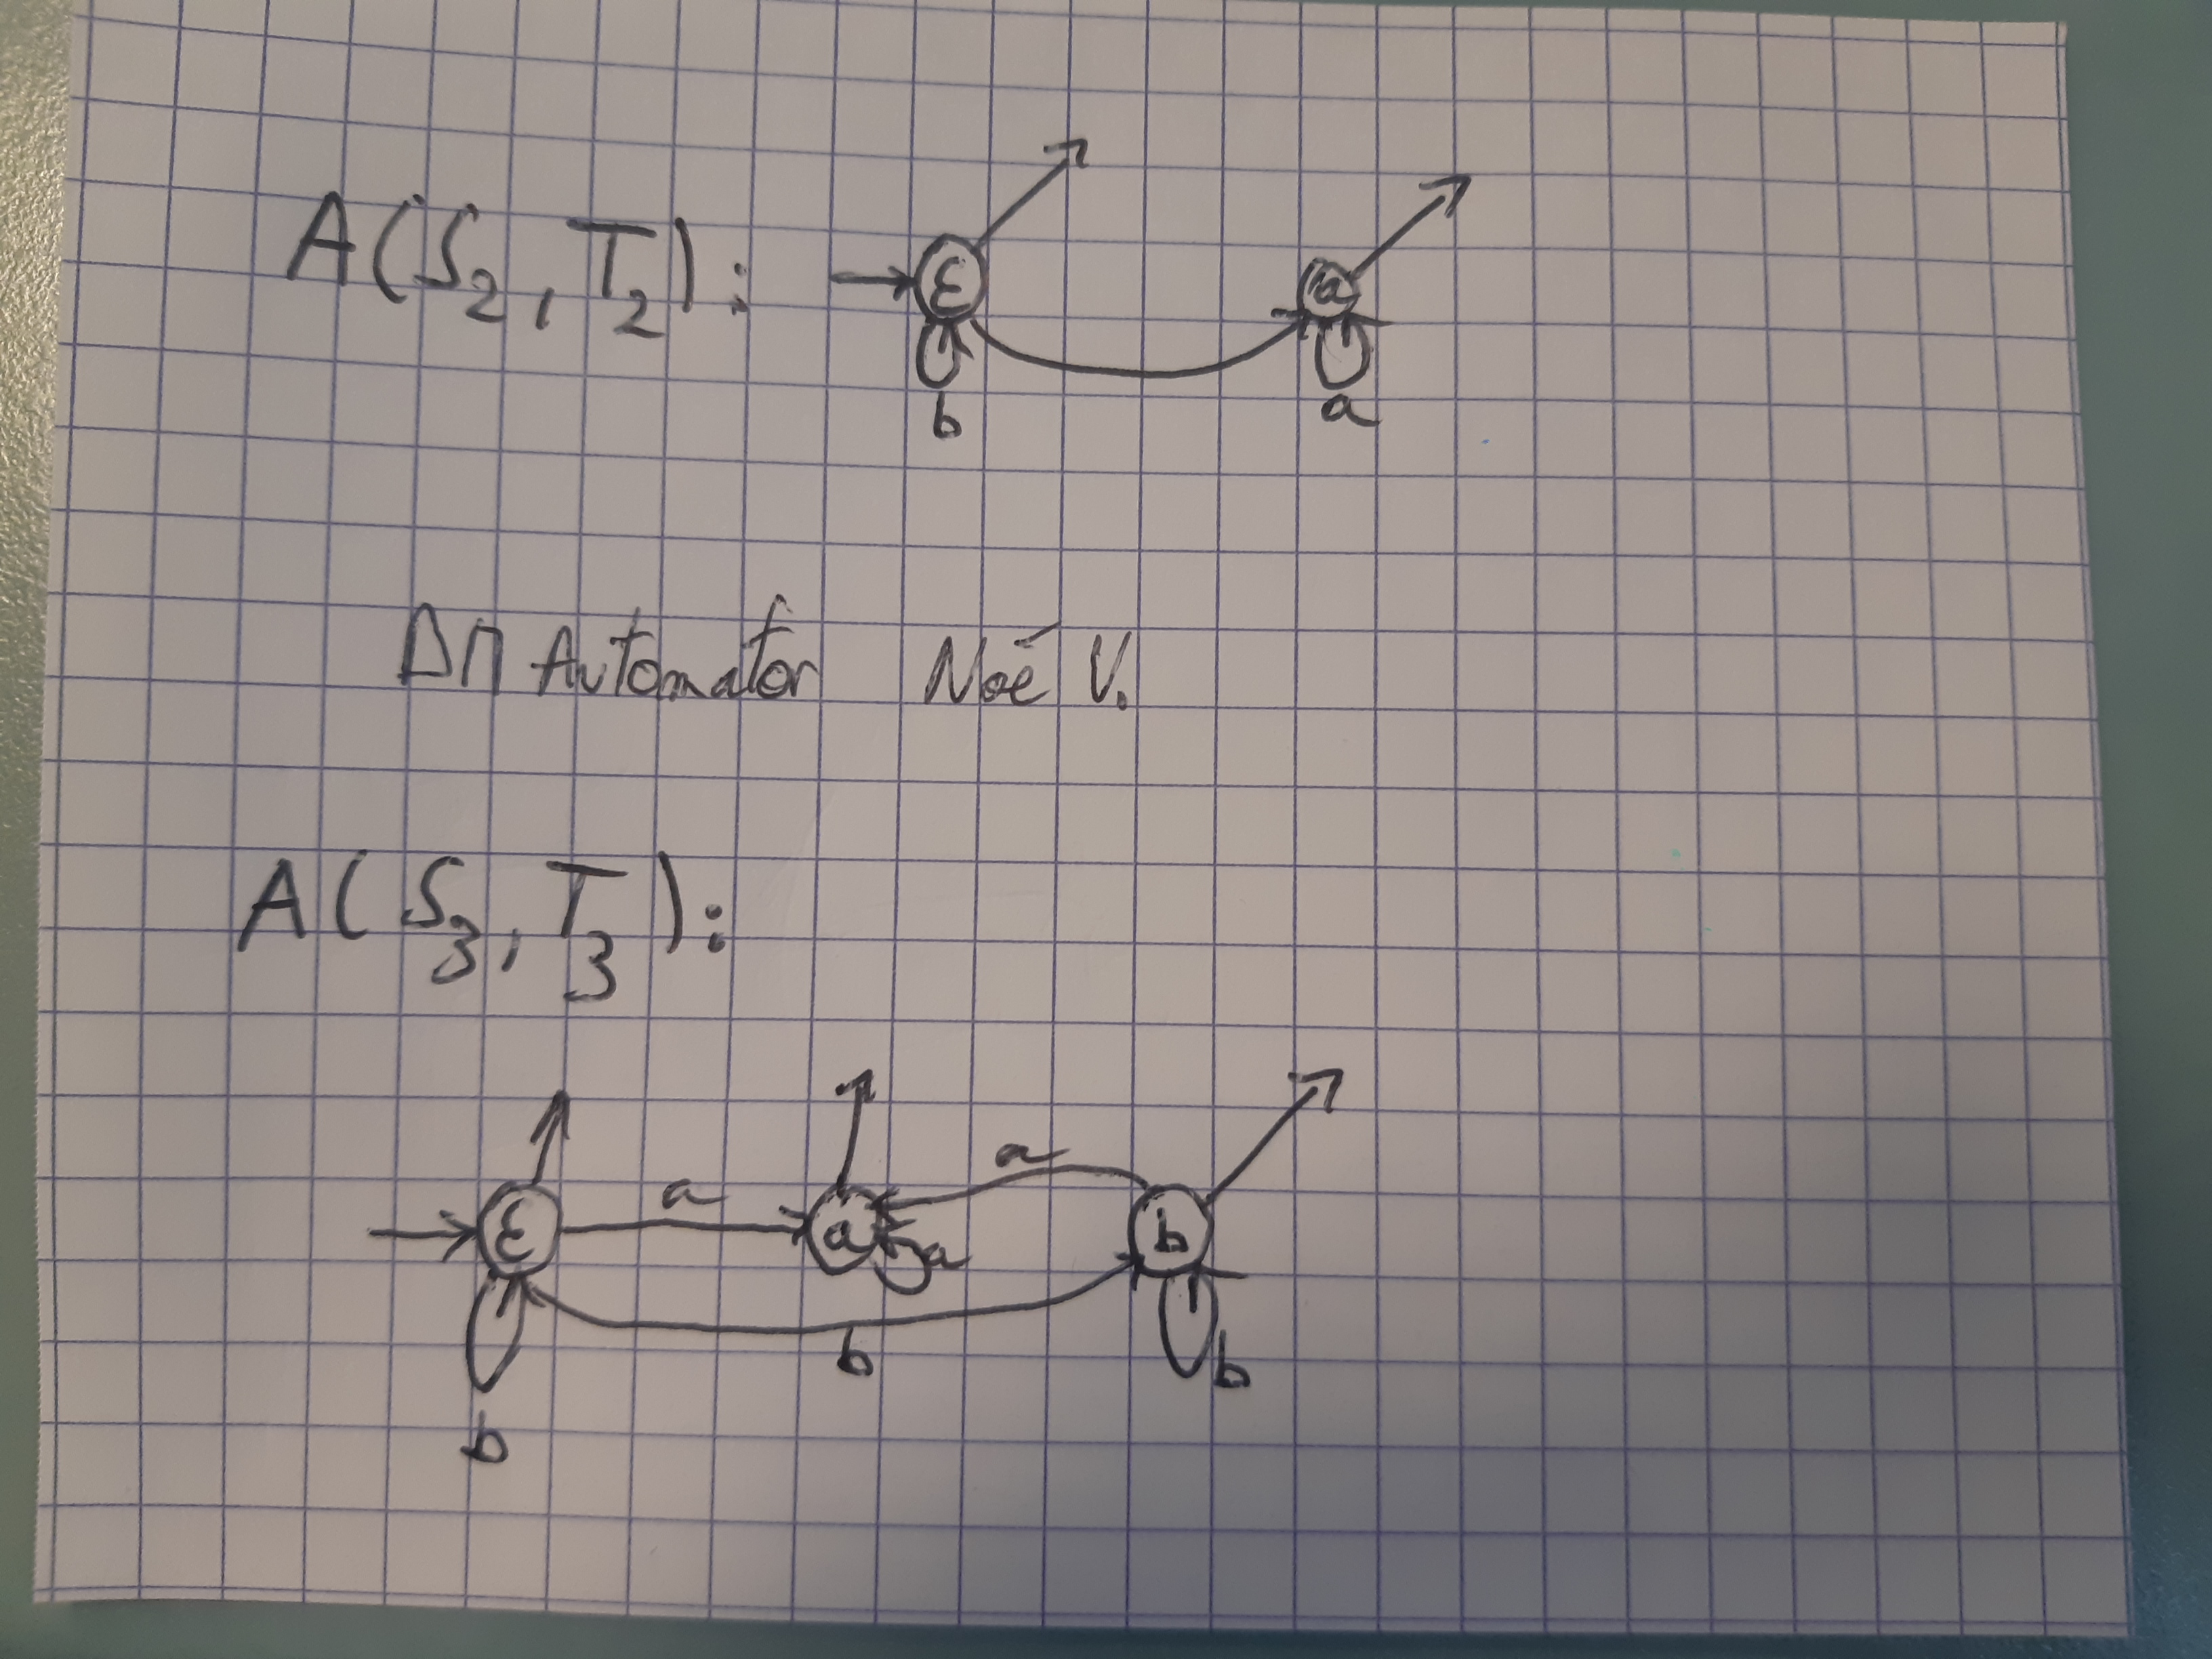 A(S2, T2):
ε a
b a
DM Automator Noé V.
A(S3, T3):
a
a
ε a a b
b b
b